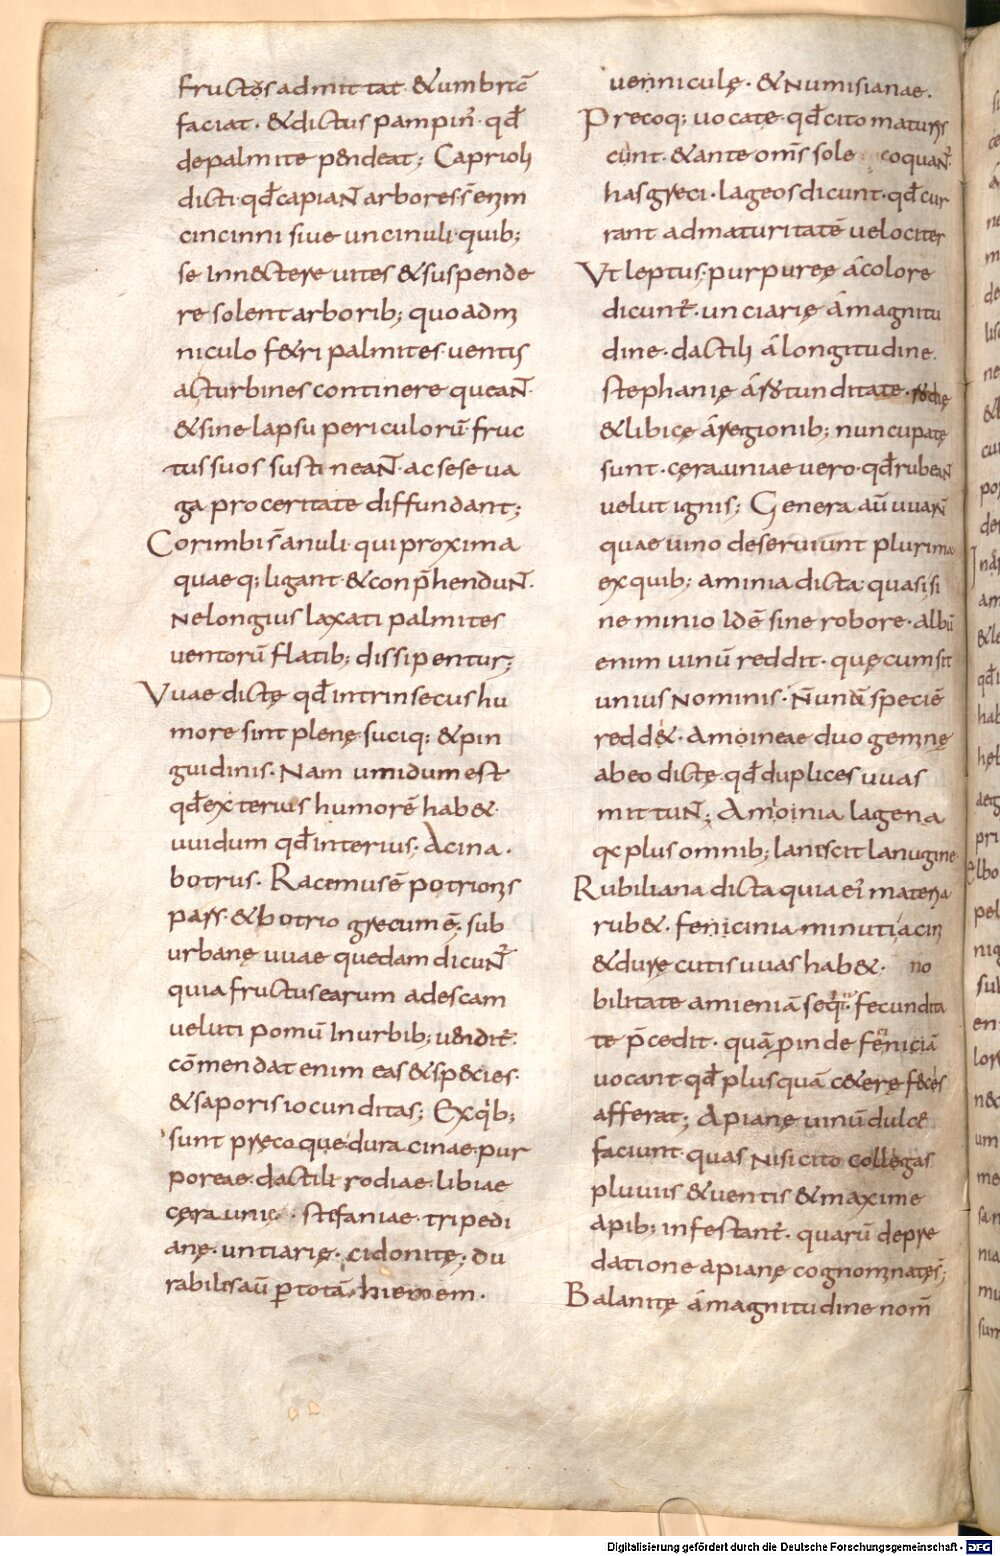 fructos admittat · & umbrā
faciat · & dictus pampin᷒ · qđ
de palmite pendeat; Caprioli
dicti · qđ capiant arbores · s̄ enim
cincinni siue uncinuli · quib;
se innectere uites & suspende
re solent arborib; quo admi
niculo f&ri palmites · uentis
ac turbines continere queant ·
& sine lapsu periculorū fruc
tus suos sustineant · ac sese ua
ga proceritate diffundant;
Corimbi s̄ anuli · qui proxima
quaeq; ligant & conp̄hendunt ·
Ne longius laxati palmites
uentorū flatib; dissipentur;
Vuae dictę qđ intrinsecus hu
more sint plenę suciq; & pin
guidinis · Nam umidum est
qđ exterius humorē hab& ·
uuidum qđ interius · Acina ·
botrus · Racemus ē potrionis
pars · & botrio grecum ē; sub
urbanę uuae quedam dicunt᷒
quia fructus earum ad escam
ueluti pomū in urbib; uendit᷒ ·
cōmendat enim eas & species ·
& saporis iocunditas; Ex q'b;
sunt pręcoque · duracinae · pur
poreae · dactili · rodiae · libiae
cęraunię · stefaniae · tripedi
anę · untiarię · cidonitę; Du
rabilis aū ꝑ totā hiemem ·
uenniculę · & Numisianae ·
Precoq; uocate · qđ cito matures
cunt · & ante om̄s sole coquant᷒
has greci · lageos dicunt · qđ cur
rant ad maturitatē uelociter
Vt leptus; purpureę a colore
dicunt᷒ · unciarię a magnitu
dine · dactili a longitudine ·
stephanię a rotunditate · rodię
& libicę a regionib; nuncupatę
sunt · cęrauniae uero · qđ rubeant
uelut ignis; Genera aū uuarū
quae uino deseruiunt plurima
ex quib; aminia dicta · quasi si
ne minio idē sine robore · albū
enim uinū reddit · quę cum sit
unius nominis · n̄ unā speciē
redd& · Amoineae duo geminę
ab eo dictę · qđ duplices uuas
mittunt; Amoinia lagena
qc plus omnib; laniscit lanugine
Rubiliana dicta quia ei᷒ materia
rub& · fenicinia · minuti acini
& durę cutis uuas hab& · no
bilitate amieniā seqt᷒ · fecundita
te p̄cedit · quā ꝓinde feniciā
uocant · qđ plus quā c&erę fęces
afferat; Apianę uinū dulce
faciunt · quas nisi cito collegas
pluuiis & uentis & maxime
apib; infestant᷒ · quarū depre
datione apianę cognominatę s̄;
Balanitę a magnitudine nom̄